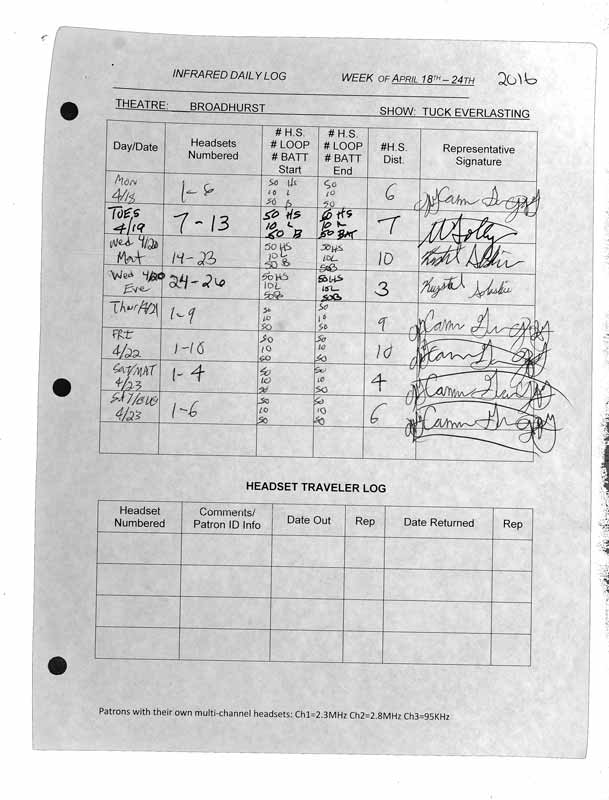 INFRARED DAILY LOG WEEK OF APRIL 18TH – 24TH 2016
THEATRE: BROADHURST SHOW: TUCK EVERLASTING
Day/Date Headsets Numbered # H.S. # LOOP # BATT Start # H.S. # LOOP # BATT End #H.S. Dist. Representative Signature
MON 4/18 1-6 50 HS 10 L 50 B 50 10 50 6
TUES 4/19 7-13 50 HS 10 L 50 B 50 HS 10 L 50 BAT 7
Wed 4/20 Mat 14-23 50HS 10L 50B 50HS 10L 50B 10
Wed 4/20 Eve 24-26 50HS 10L 50B 50HS 10L 50B 3 Krystal
Thur 4/21 1-9 50 10 50 50 10 50 9
FRI 4/22 1-10 50 10 50 50 10 50 10
SAT/MAT 4/23 1-4 50 10 50 50 10 50 4
SAT/EVE 4/23 1-6 50 10 50 50 10 50 6
HEADSET TRAVELER LOG
Headset Numbered Comments/ Patron ID Info Date Out Rep Date Returned Rep
Patrons with their own multi-channel headsets: Ch1=2.3MHz Ch2=2.8MHz Ch3=95KHz